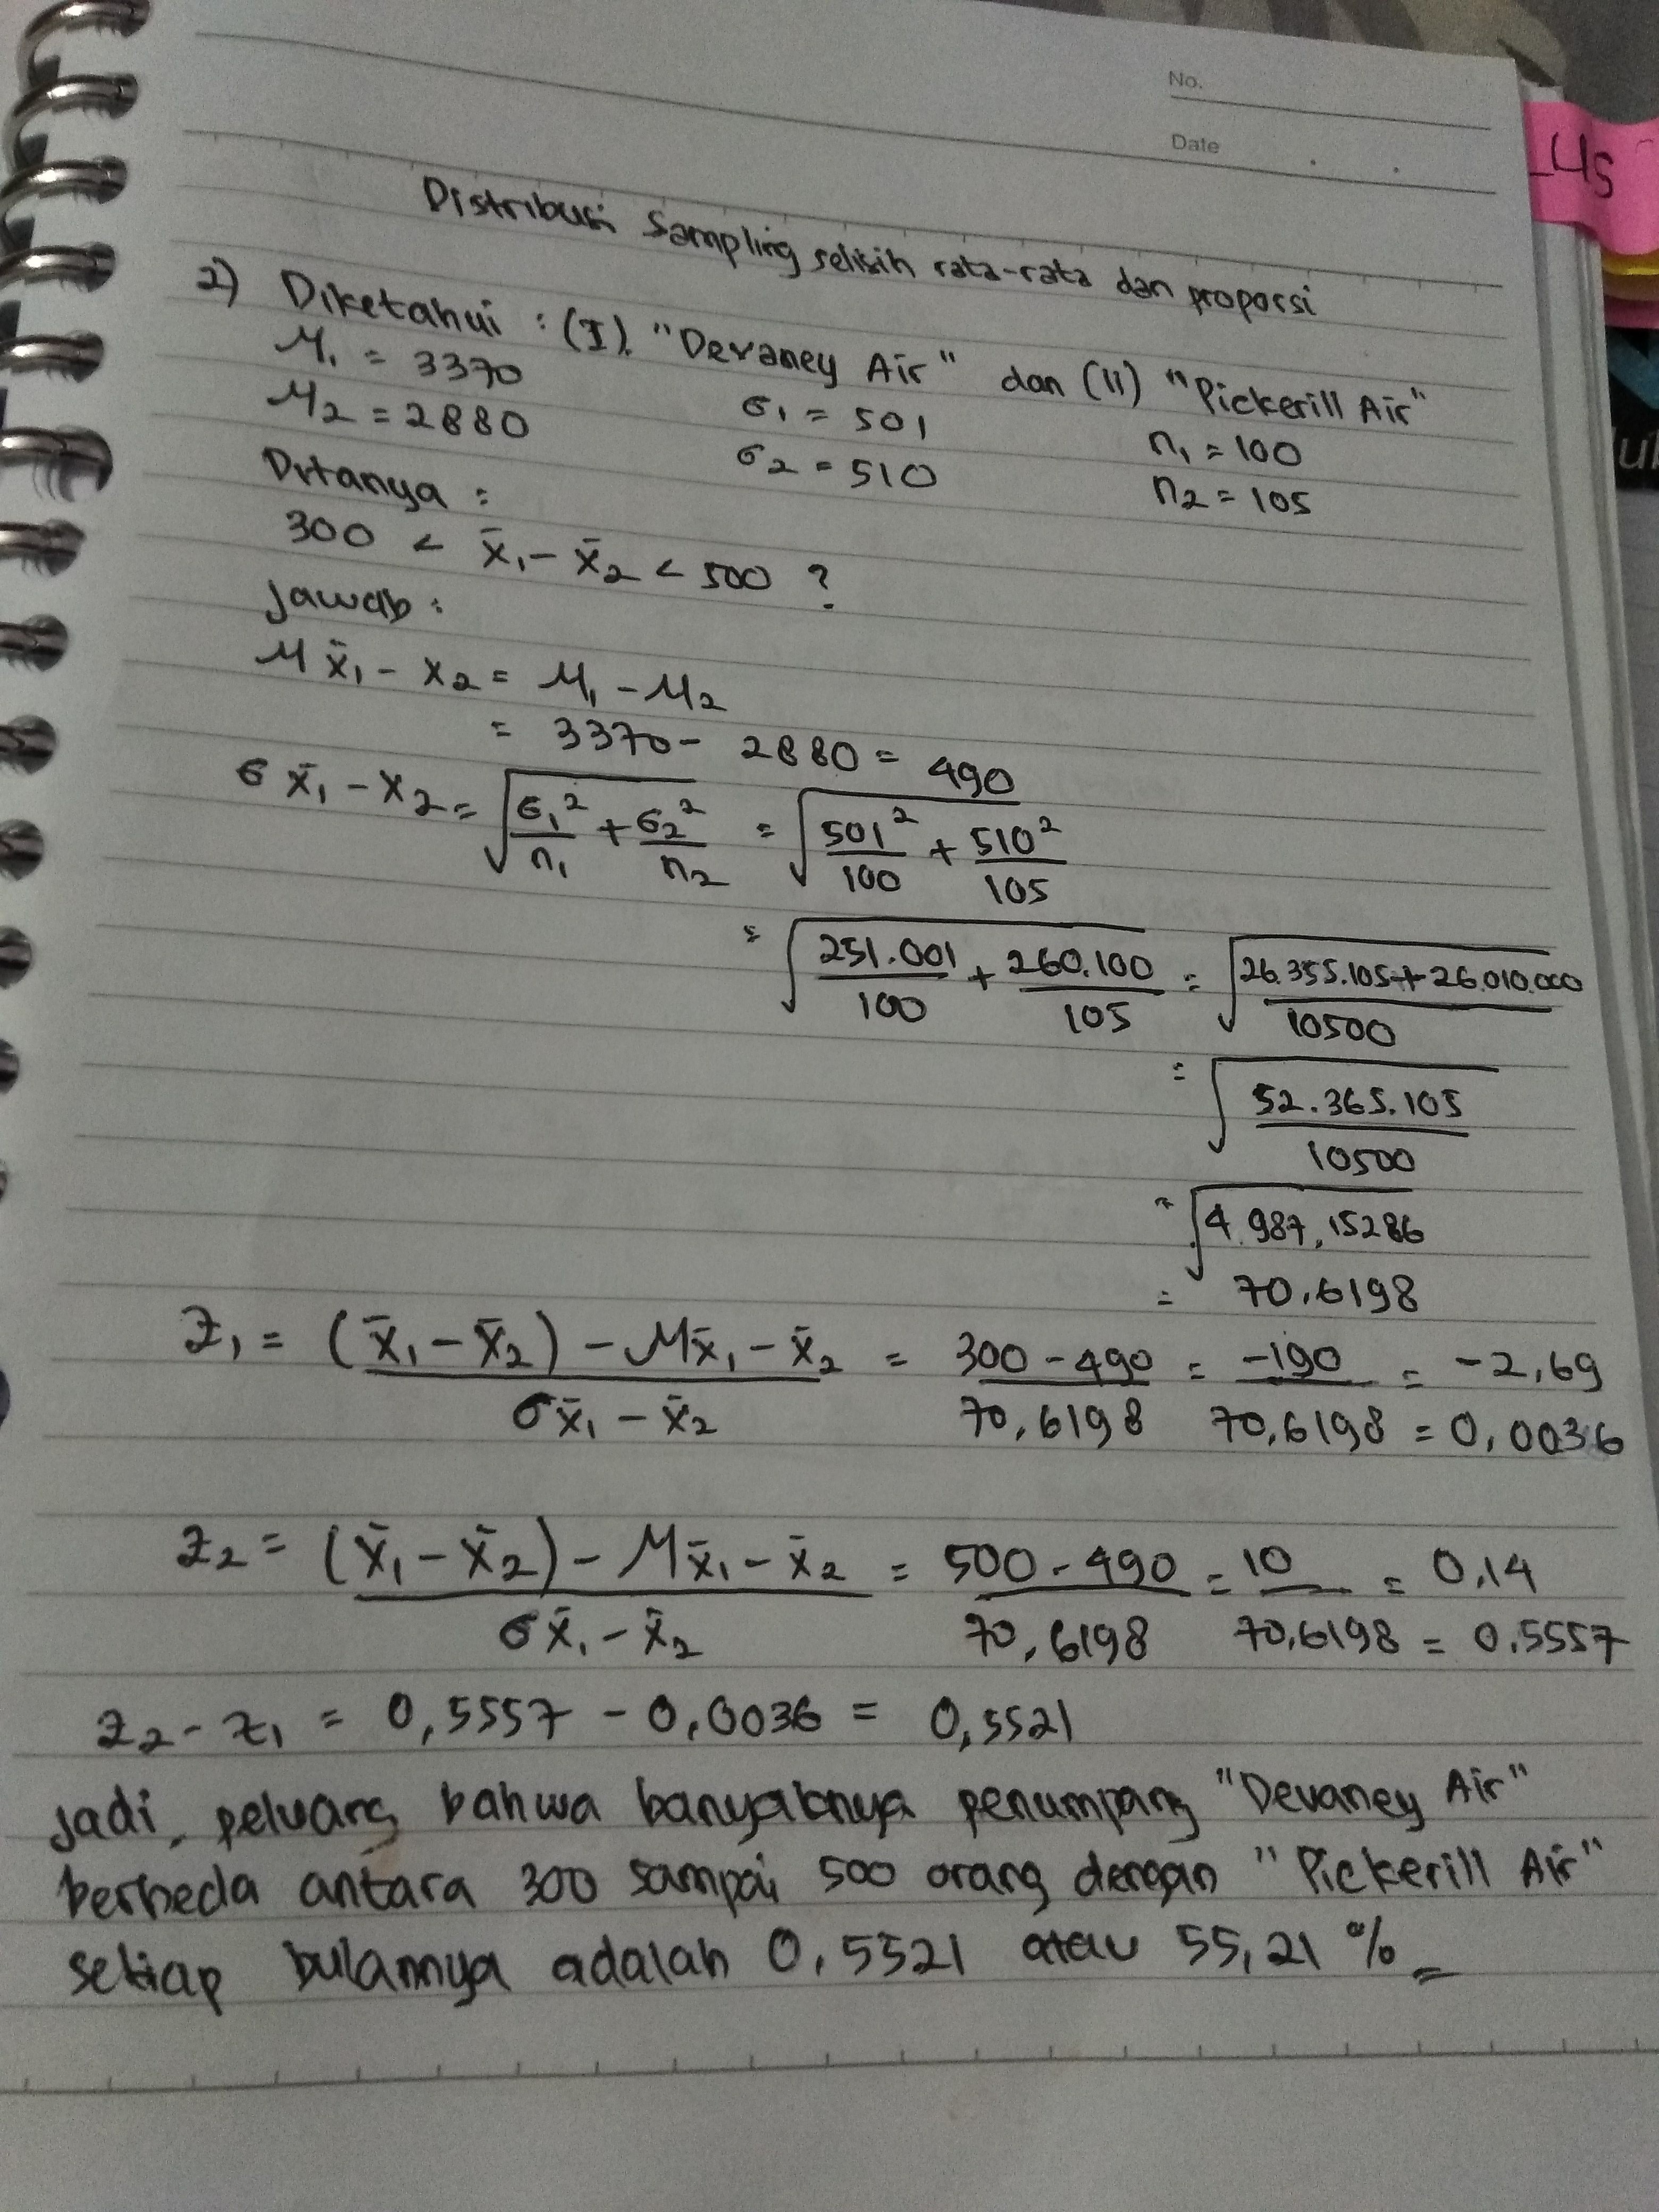 No.
Date
45
Distribusi Sampling selisih rata-rata dan proporsi
2) Diketahui : (I). "Devaney Air" dan (II) "Pickerill Air"
μ₁ = 3370 σ₁ = 501 n₁ = 100
μ₂ = 2880 σ₂ = 510 n₂ = 105
Ditanya :
300 < x̄₁ - x̄₂ < 500 ?
Jawab :
μ x̄₁ - x₂ = μ₁ - μ₂
= 3370 - 2880 = 490
σ x̄₁ - x₂ = √(σ₁²/n₁ + σ₂²/n₂) = √(501²/100 + 510²/105)
= √(251.001/100 + 260.100/105) = √((26.355.105 + 26.010.000)/10500)
= √(52.365.105/10500)
= √4.987,15286
= 70,6198
Z₁ = ((x̄₁ - x̄₂) - μx̄₁ - x̄₂)/(σx̄₁ - x̄₂) = (300 - 490)/70,6198 = -190/70,6198 = -2,69
= 0,0036
Z₂ = ((x̄₁ - x̄₂) - μx̄₁ - x̄₂)/(σx̄₁ - x̄₂) = (500 - 490)/70,6198 = 10/70,6198 = 0,14
= 0,5557
Z₂ - Z₁ = 0,5557 - 0,0036 = 0,5521
Jadi, peluang bahwa banyaknya penumpang "Devaney Air"
berbeda antara 300 sampai 500 orang dengan "Pickerill Air"
setiap bulannya adalah 0,5521 atau 55,21 %